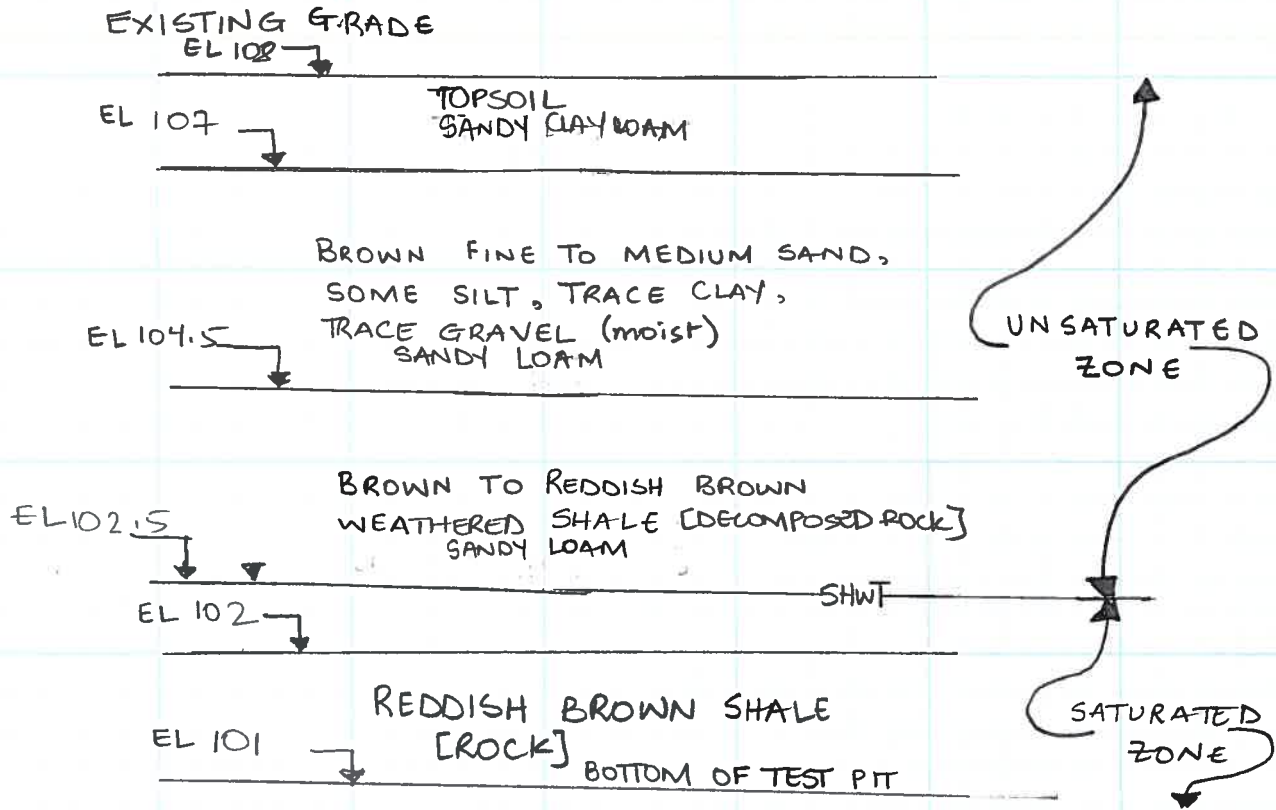 EXISTING GRADE
EL 108
TOPSOIL
SANDY CLAY LOAM
EL 107
BROWN FINE TO MEDIUM SAND,
SOME SILT, TRACE CLAY,
TRACE GRAVEL (moist)
SANDY LOAM
EL 104.5
UNSATURATED
ZONE
BROWN TO REDDISH BROWN
WEATHERED SHALE [DECOMPOSED ROCK]
SANDY LOAM
EL 102.5
SHWT
EL 102
REDDISH BROWN SHALE
[ROCK]
EL 101
BOTTOM OF TEST PIT
SATURATED
ZONE